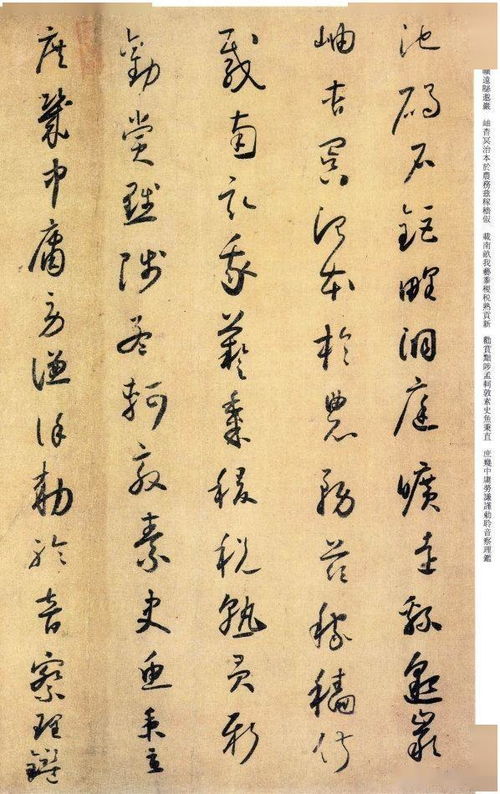 池碣石鉅野洞庭曠遠緜邈巖
岫杳冥治本於農務茲稼穡俶
載南畝我藝黍稷稅熟貢新
勸賞黜陟孟軻敦素史魚秉直
庶幾中庸勞謙謹勅聆音察理鑑
曠遠緜邈巖　岫杳冥治本於農務茲稼穡俶　載南畝我藝黍稷稅熟貢新　勸賞黜陟孟軻敦素史魚秉直　庶幾中庸勞謙謹勅聆音察理鑑